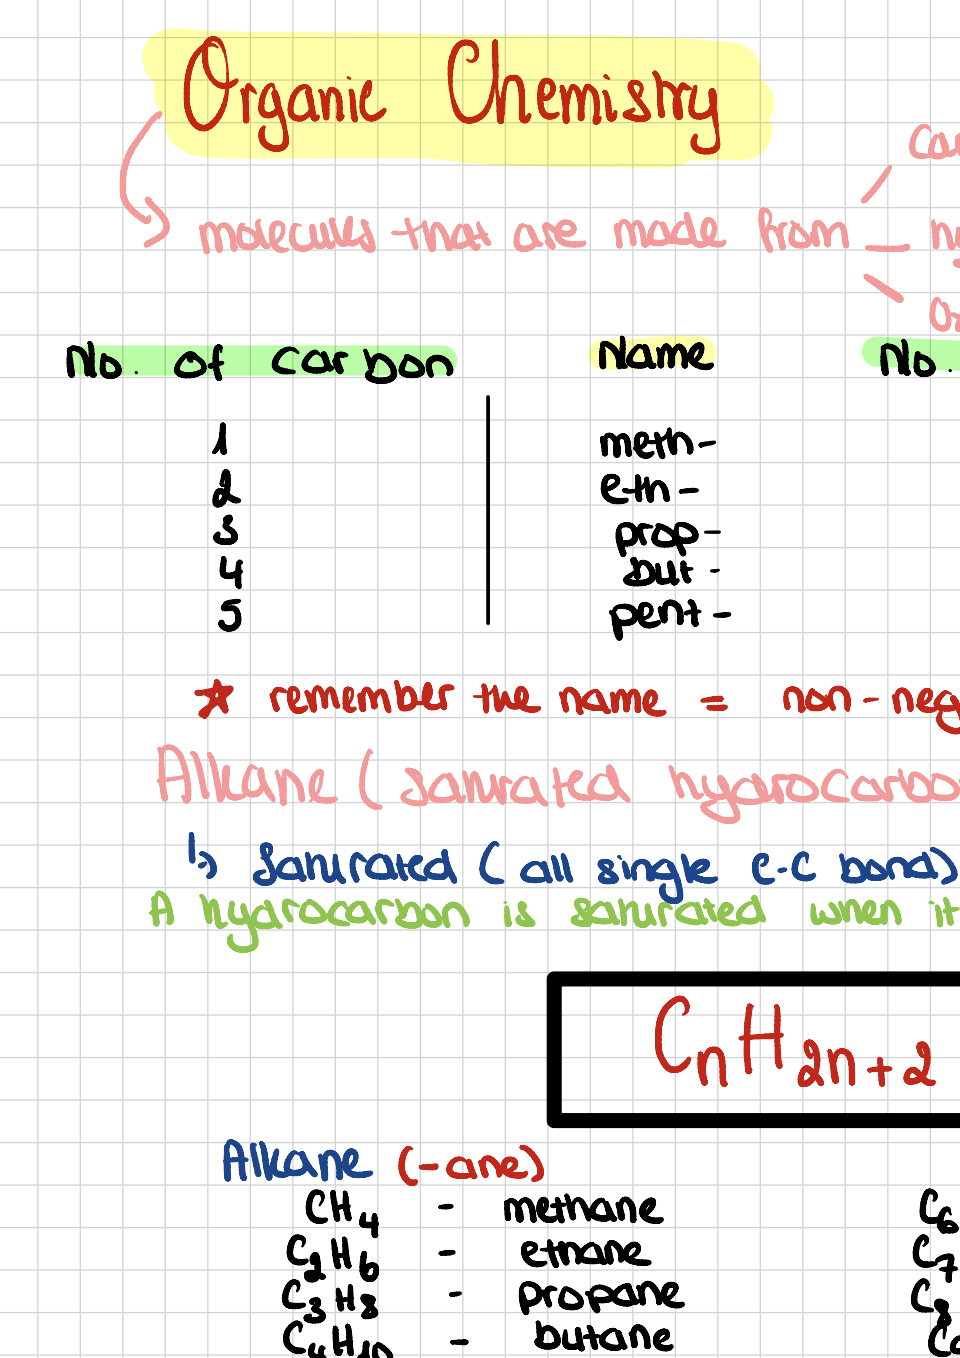 Organic Chemistry
molecules that are made from
No. of carbon Name No.
1 meth-
2 eth-
3 prop-
4 but-
5 pent-
★ remember the name = non-neg
Alkane (saturated hydrocarbo
↳ Saturated (all single C-C bond)
A hydrocarbon is saturated when it
CnH2n+2
Alkane (-ane)
CH4 - methane C6
C2H6 - ethane C7
C3H8 - propane C8
C4H10 - butane